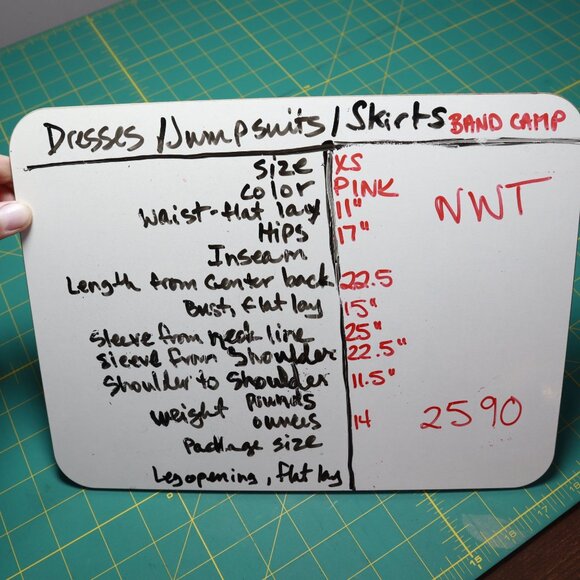 Dresses /Jumpsuits / Skirts BAND CAMP
size XS
color PINK
waist-flat lay 11"
NWT
Hips 17"
Inseam
Length from center back 22.5
Bust, flat lay 15"
sleeve from neck line 25"
sleeve from shoulder 22.5"
shoulder to shoulder 11.5"
weight pounds
ounces 14
2590
Package size
Leg opening, flat lay
15
16
17
18